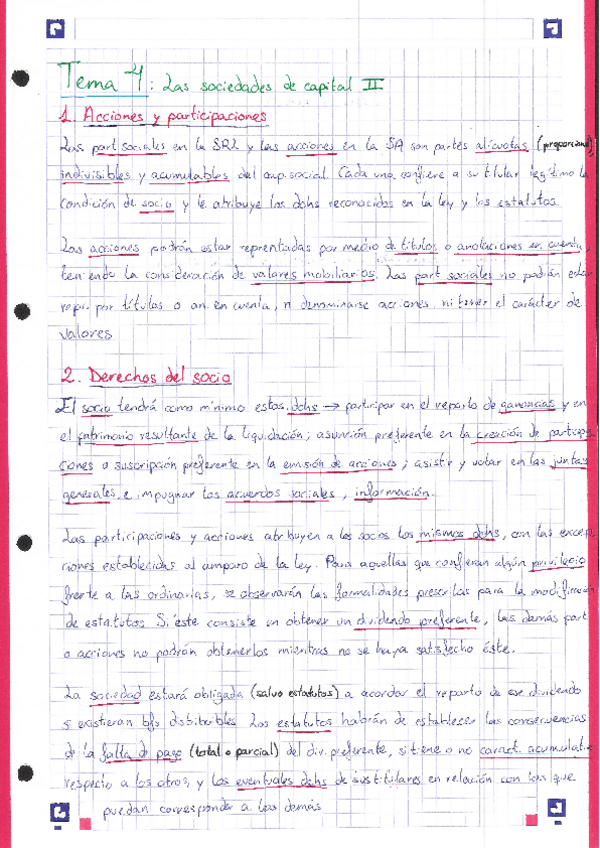 Tema 4: Las sociedades de capital II
1. Acciones y participaciones
Las part.sociales en la SRL y las acciones en la SA son partes alícuotas (proporcional),
indivisibles y acumulables del cap.social. Cada una confiere a su titular legítimo la
condición de socio y le atribuye los dchs reconocidos en la ley y los estatutos.
Las acciones podrán estar reprentadas por medio de títulos o anotaciones en cuenta,
teniendo la consideración de valores mobiliarios. Las part sociales no podrán estar
repr. por títulos o an. en cuenta, ni denominarse acciones, ni tener el carácter de
valores.
2. Derechos del socio
El socio tendrá como mínimo estos dchs → participar en el reparto de ganancias y en
el patrimonio resultante de la liquidación; asunción preferente en la creación de particip
ciones o suscripción preferente en la emisión de acciones; asistir y votar en las juntas
generales, e impugnar los acuerdos sociales, información.
Las participaciones y acciones atribuyen a los socios los mismos dchs, con las excep
ciones establecidas al amparo de la ley. Para aquellas que confieran algún privilegio
frente a las ordinarias, se observarán las formalidades prescritas para la modificación
de estatutos. Si éste consiste en obtener un dividendo preferente, las demás part
o acciones no podrán obtenerlos mientras no se haya satisfecho éste.
La sociedad estará obligada (salvo estatutos) a acordar el reparto de ese dividendo
si existieran bfs distribuibles. Los estatutos habrán de establecer las consecuencias
de la falta de pago (total o parcial) del div. preferente, si tiene o no caract. acumulativo
respecto a los otros, y los eventuales dchs de sus titulares en relación con los que
puedan corresponder a las demás